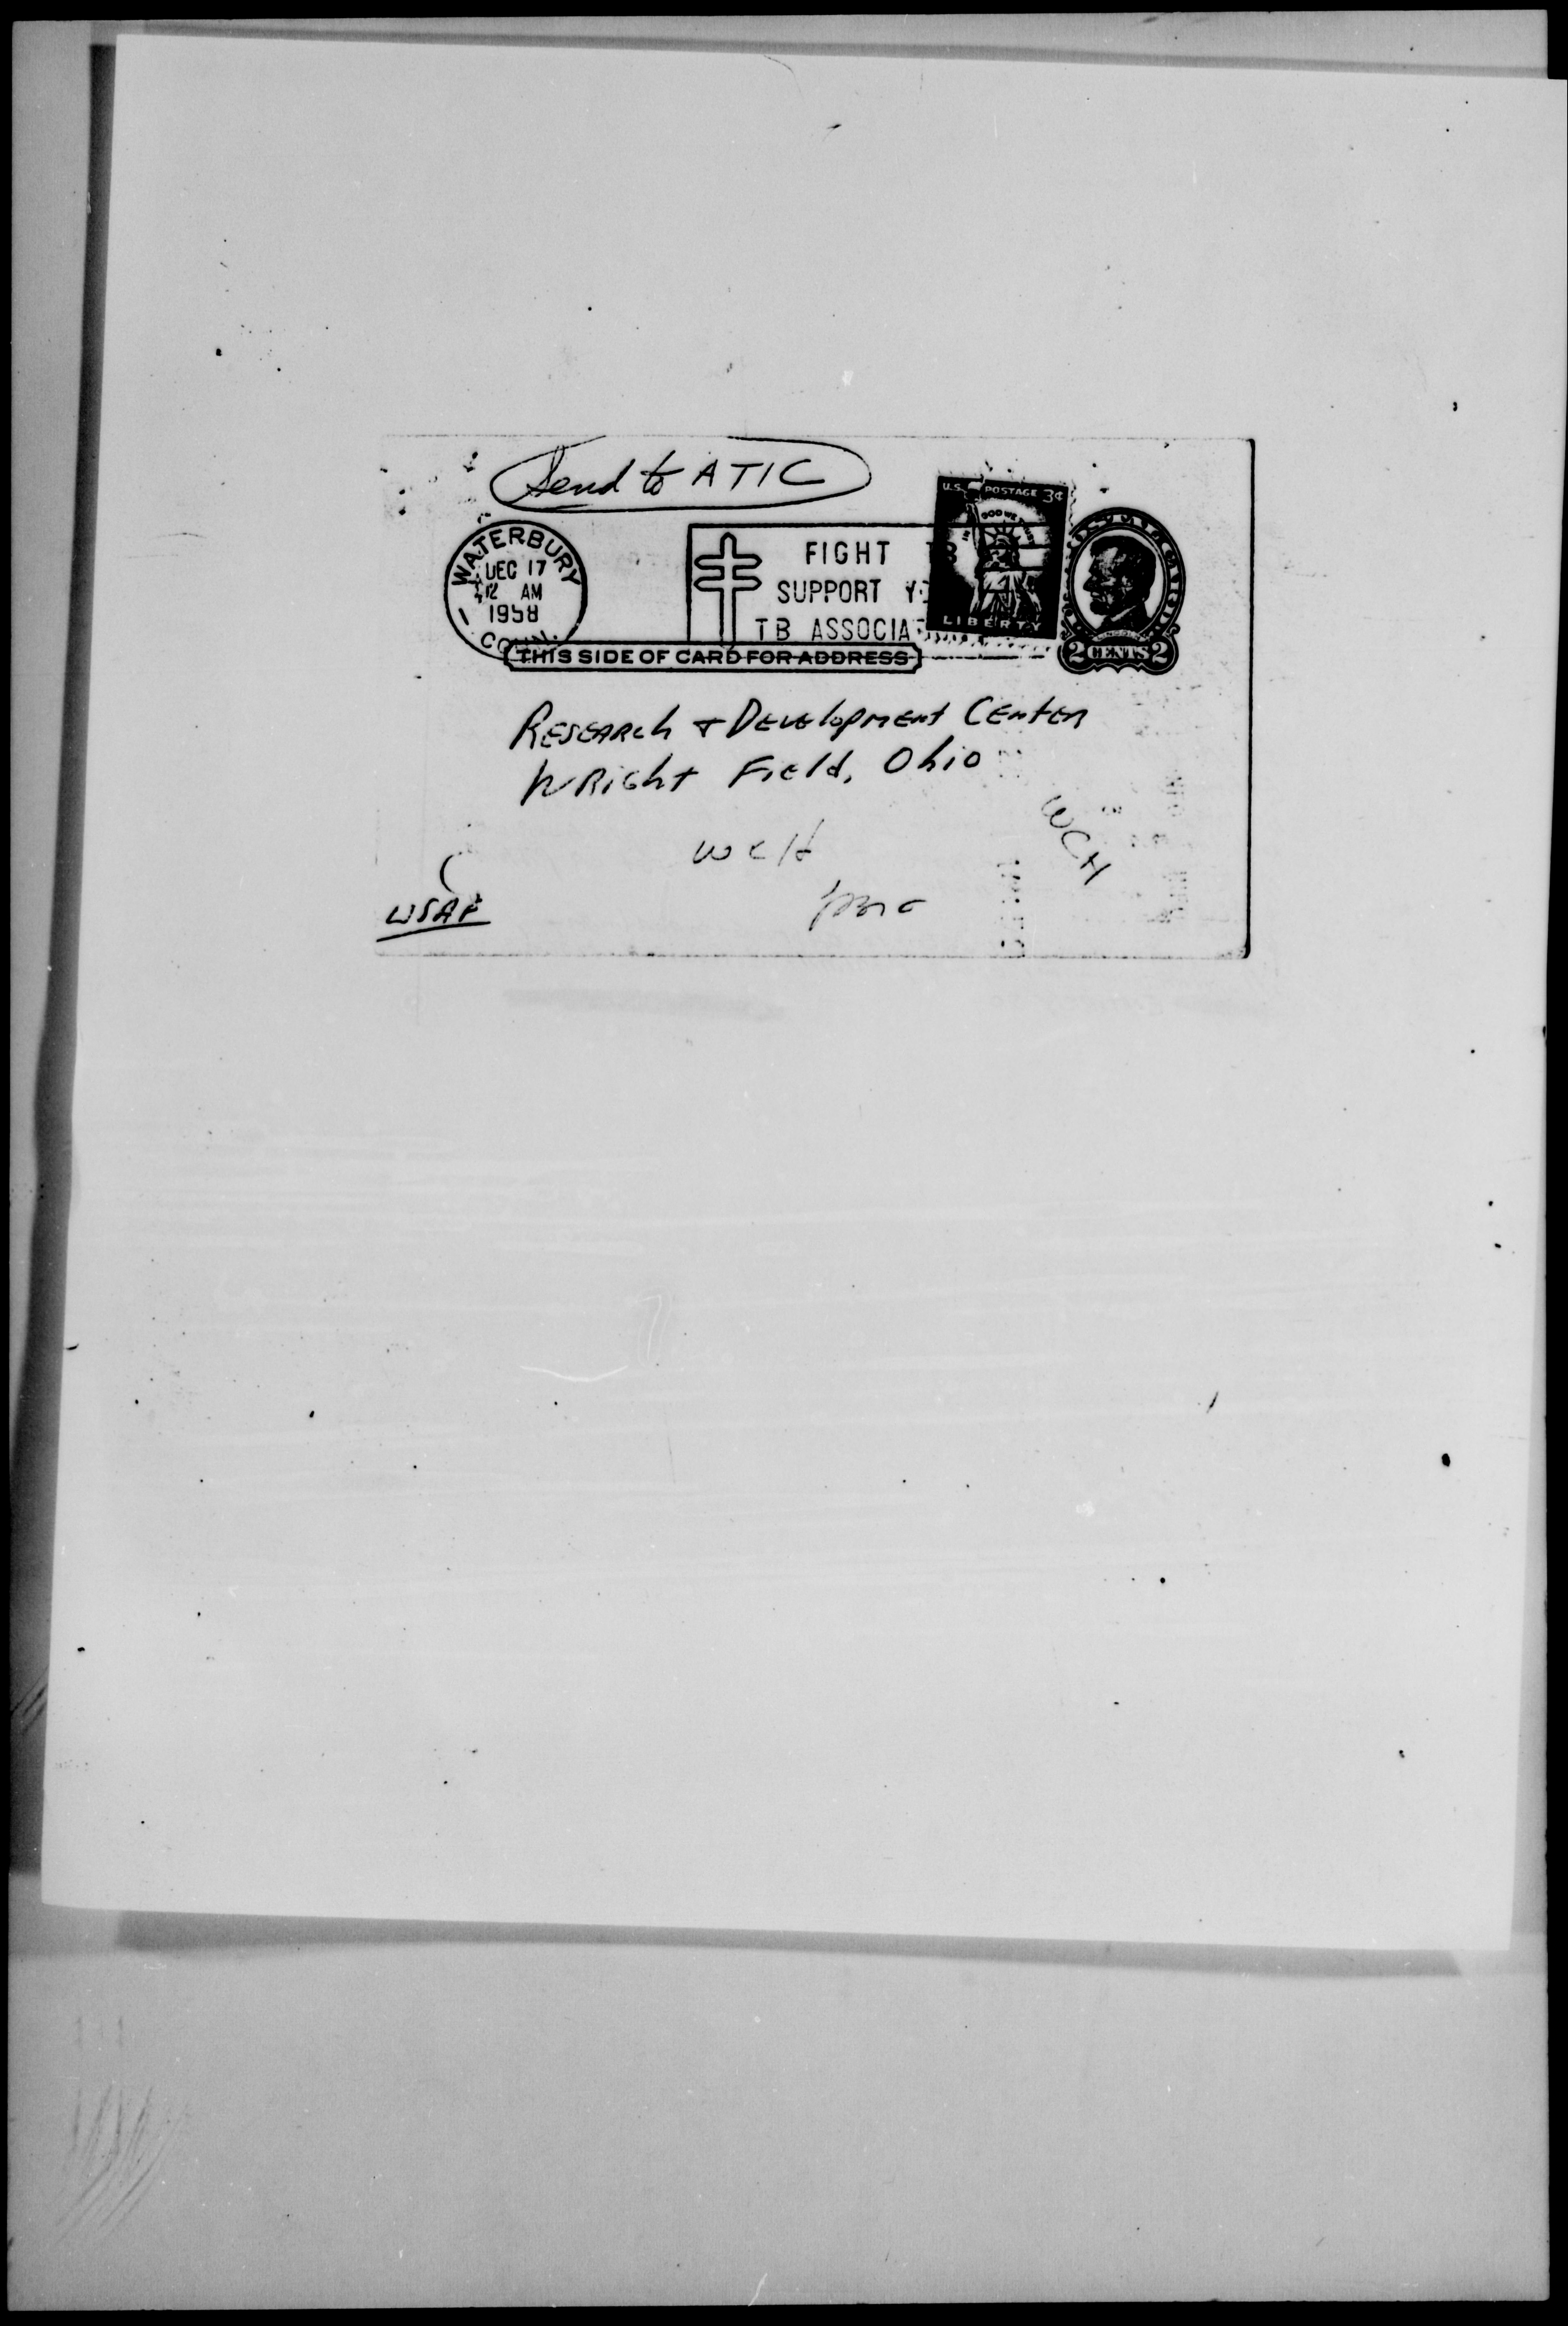 Send to ATIC
U.S. POSTAGE 3¢
IN GOD WE
LIBERTY
WATERBURY
DEC 17
12 AM
1958
CONN.
FIGHT TB
SUPPORT
TB
LINCOLN
2 CENTS 2
THIS SIDE OF CARD FOR ADDRESS
Research & Development Center
Wright Field, Ohio
WCH
WCH
USAF